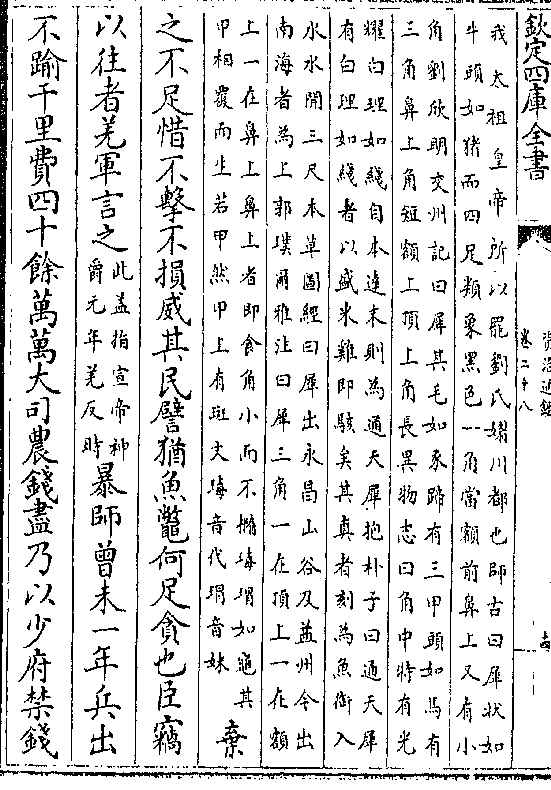 欽定四庫全書
資治通鑑
卷二十八
我太祖皇帝所以罷劉氏媚川都也師古曰犀狀如
牛頭如猪而四足類象黑色一角當額前鼻上又有小
角劉欣明交州記曰犀其毛如豕蹄有三甲頭如馬有
三角鼻上角短額上頂上角長異物志曰角中特有光
耀白理如綫自本達末則為通天犀抱朴子曰通天犀
有白理如綫者以盛米雞即駭矣其真者刻為魚銜入
水水開三尺本草圖經曰犀出永昌山谷及益州今出
南海者為上郭璞爾雅注曰犀三角一在頂上一在額
上一在鼻上鼻上者即食角小而不橢瑇瑁如龜其
甲相覆而生若甲然甲上有斑文瑇音代瑁音妹
棄
之不足惜不擊不損威其民譬猶魚鼈何足貪也臣竊
以往者羌軍言之
此蓋指宣帝神
爵元年羌反時
暴師曾未一年兵出
不踰千里費四十餘萬萬大司農錢盡乃以少府禁錢